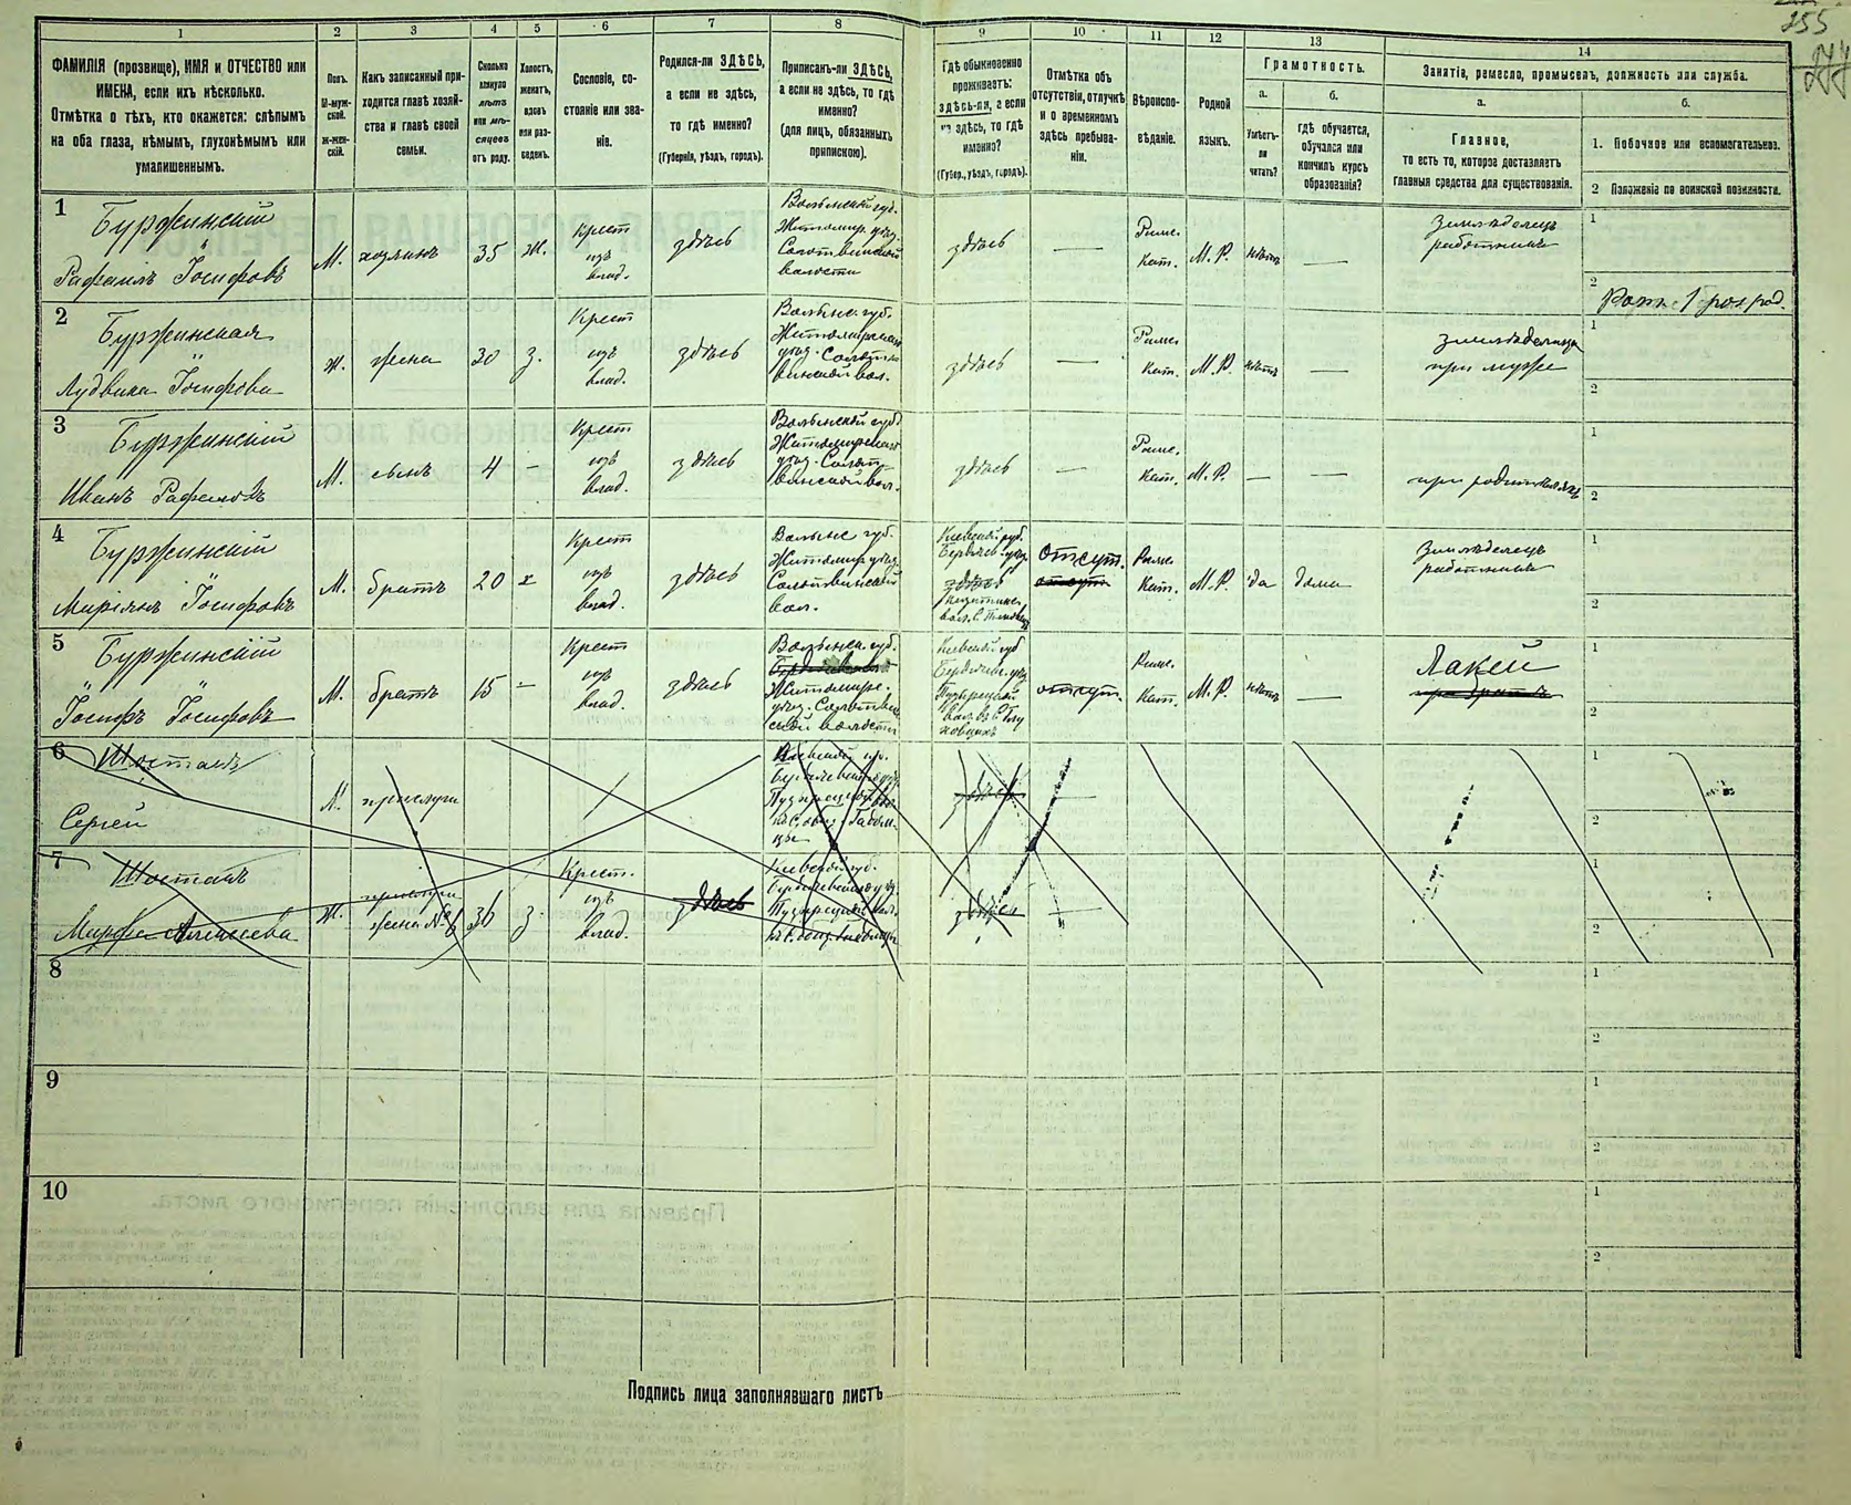 255
277
1
2
3
4
5
6
7
8
9
10
11
12
13
14
ФАМИЛІЯ (прозвище), ИМЯ и ОТЧЕСТВО или
ИМЕНА, если ихъ нѣсколько.
Отмѣтка о тѣхъ, кто окажется: слѣпымъ
на оба глаза, нѣмымъ, глухонѣмымъ или
умалишеннымъ.
Полъ.
М-муж-
ской.
Ж-жен-
скій.
Какъ записанный при-
ходится главѣ хозяй-
ства и главѣ своей
семьи.
Сколько
минуло
лѣтъ
или мѣ-
сяцевъ
отъ роду.
Холостъ,
женатъ,
вдовъ
или раз-
веденъ.
Сословіе, со-
стояніе или зва-
ніе.
Родился-ли ЗДѢСЬ,
а если не здѣсь,
то гдѣ именно?
(Губернія, уѣздъ, городъ).
Приписанъ-ли ЗДѢСЬ,
а если не здѣсь, то гдѣ
именно?
(для лицъ, обязанныхъ
припискою).
Гдѣ обыкновенно
проживаетъ:
здѣсь-ли, а если
не здѣсь, то гдѣ
именно?
(Губер., уѣздъ, городъ).
Отмѣтка объ
отсутствіи, отлучкѣ
и о временномъ
здѣсь пребыва-
ніи.
Вѣроиспо-
вѣданіе.
Родной
языкъ.
Грамотность.
а.
Умѣетъ-
ли
читать?
б.
гдѣ обучается,
обучался или
кончилъ курсъ
образованія?
Занятіе, ремесло, промыселъ, должность или служба.
а.
Главное,
то есть то, которое доставляетъ
главныя средства для существованія.
б.
1. Побочное или вспомогательное.
2 Положеніе по воинской повинности.
1
Буржинскій
Рафаилъ Іосифовъ
М.
хозяинъ
35
ж.
Крест
изъ
влад.
здѣсь
Волынской губ.
Житомир. уѣзд.
Солотвинской
волости
здѣсь
—
Римс.
Кат.
М. Р.
нѣтъ
—
Земледѣлецъ
работникъ
1
2
Ратн. 1 разряд.
2
Буржинская
Лудвика Іосифова
ж.
жена
30
з.
Крест
изъ
влад.
здѣсь
здѣсь
—
Римс.
Кат.
М. Р.
нѣтъ
—
земледѣлица
при мужѣ
1
2
3
Буржинскій
Иванъ
М.
сынъ
4
–
Крест
изъ
влад.
здѣсь
здѣсь
—
Римс.
Кат.
М. Р.
—
—
при родителяхъ
1
2
4
Буржинскій
Маріянъ Іосифовъ
М.
братъ
20
х
Крест
изъ
влад.
здѣсь
Волынс губ.
Житомир уѣзд.
Солотвинской
вол.
Кіевской губ.
здѣсь
Отсут.
отсут
Римс.
Кат.
М. Р.
да
дома
Земледѣлецъ
работникъ
1
2
5
Буржинскій
Іосифъ Іосифовъ
М.
братъ
15
–
Крест
изъ
влад.
здѣсь
Кіевской губ
отсут.
Римс.
Кат.
М. Р.
нѣтъ
—
Лакей
при братѣ
1
2
6
Шостакъ
Сергей
М.
прислуга
здѣсь
—
1
2
7
Шостакъ
Марфа Алексѣева
ж.
прислуга
жена № 6
36
з.
Крест.
изъ
влад.
здѣсь
Кіевской губ.
здѣсь
—
1
2
8
1
2
9
1
2
10
1
2
Подпись лица заполнявшаго листъ